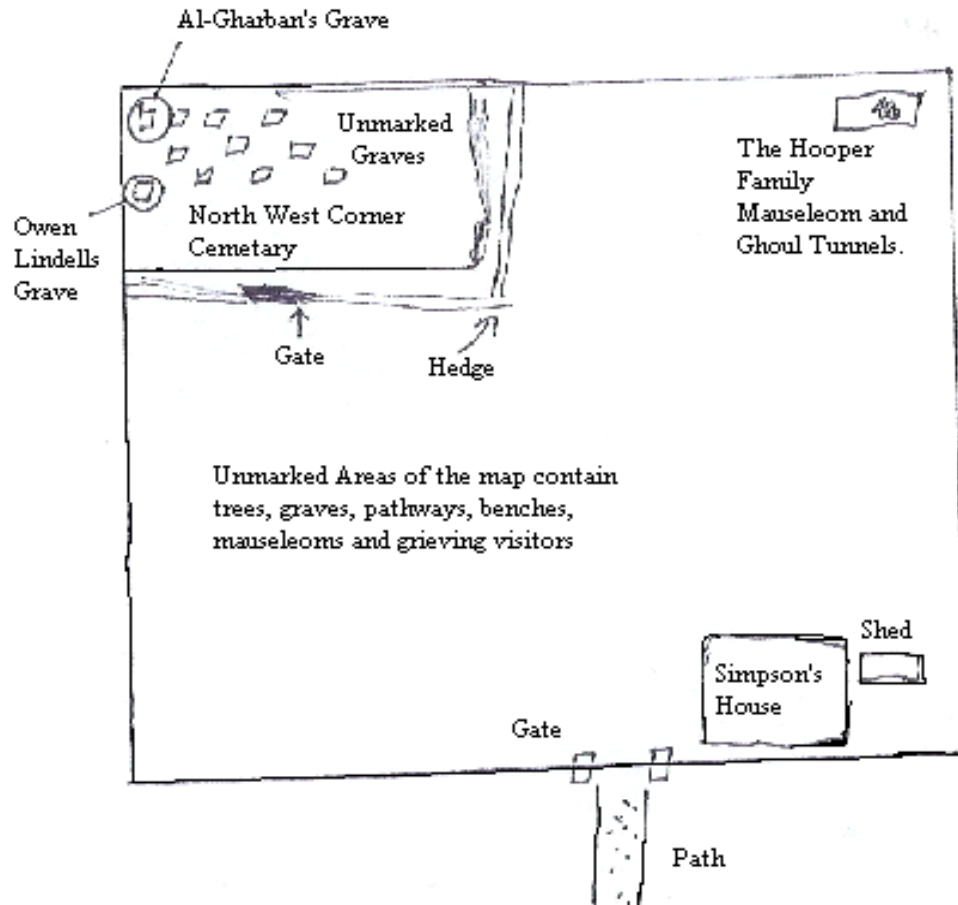 Al-Gharban's Grave
Unmarked
Graves
North West Corner
Cemetary
Owen
Lindells
Grave
The Hooper
Family
Mauseleom and
Ghoul Tunnels.
Gate
Hedge
Unmarked Areas of the map contain
trees, graves, pathways, benches,
mauseleoms and grieving visitors
Shed
Simpson's
House
Gate
Path